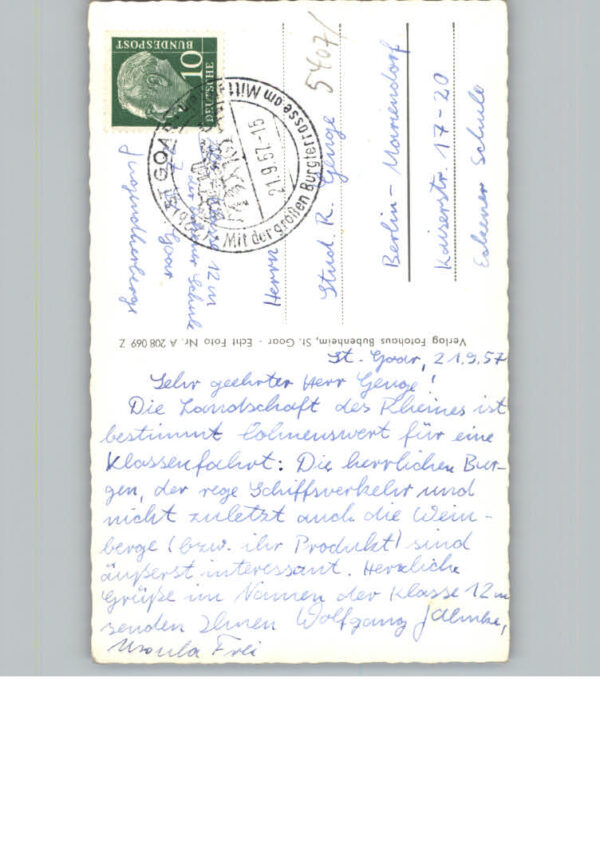 10
DEUTSCHE
BUNDESPOST
ST GOAR
21.9.57-15
Mit der großen Burgterrasse am Mitt
5407/
Klasse 12m
Schule
St. Goar
Jugendherberge
Herrn
Stud. R. Genge
Berlin - Mariendorf
Kaiserstr. 17-20
Eckener Schule
Verlag Fotohaus Bubenheim, St. Goar - Echt Foto Nr. A 208 069 Z
St. Goar, 21.9.57
Sehr geehrter Herr Genge!
Die Landschaft des Rheines ist
bestimmt lohnenswert für eine
Klassenfahrt: Die herrlichen Bur-
gen, der rege Schiffsverkehr und
nicht zuletzt auch die Wein-
berge (bzw. ihr Produkt) sind
äußerst interessant. Herzliche
Grüße im Namen der Klasse 12m
senden Ihnen Wolfgang
Ursula Frei